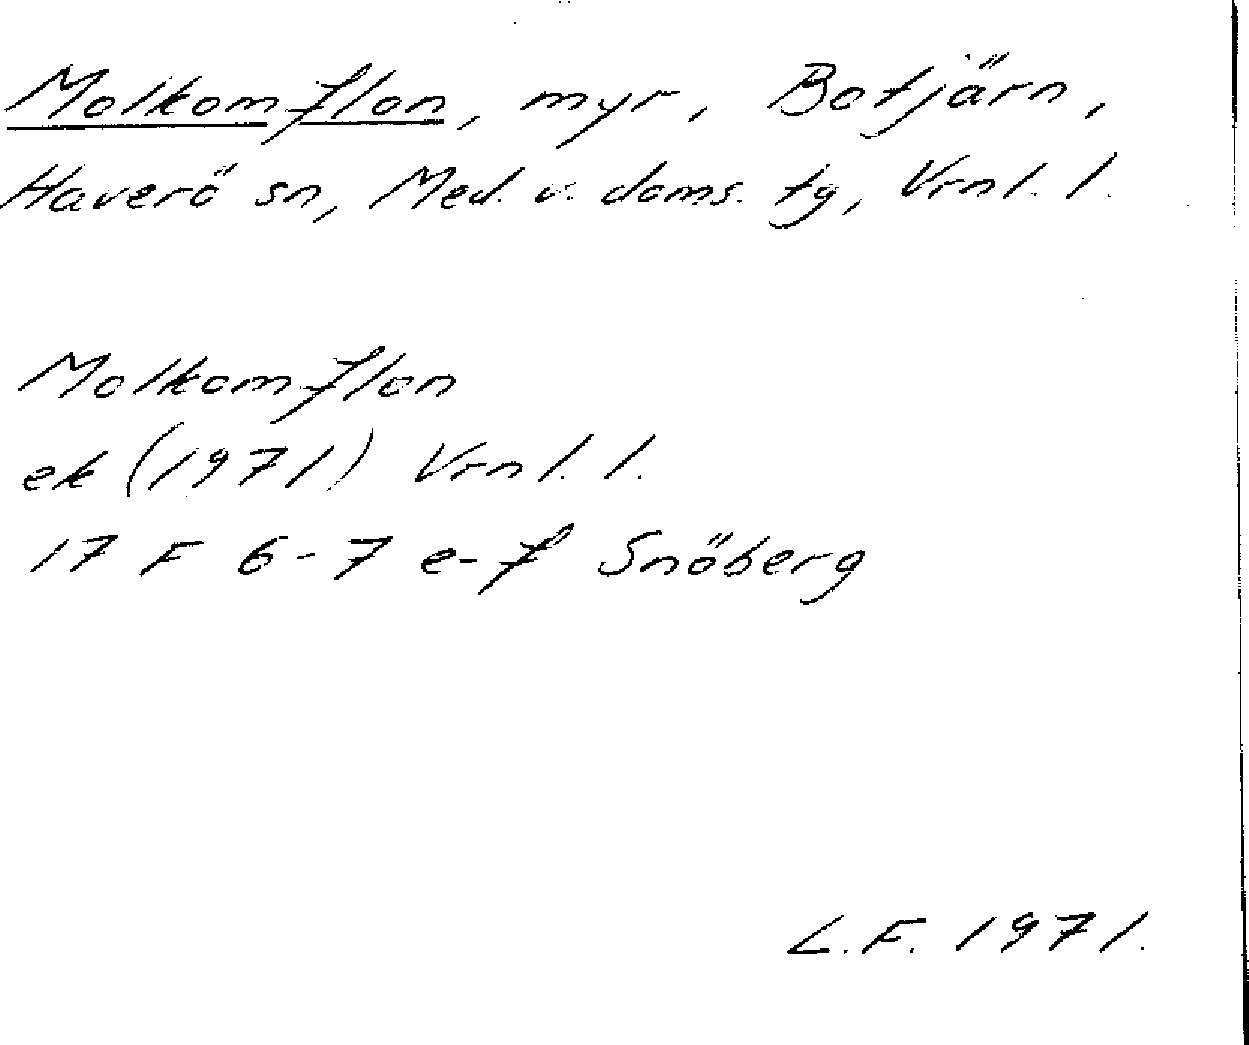 Molkomflon, myr, Botjärn,
Haverö sn, Med. v. doms. tg, Vrnl. l.
Molkomflon
ek (1971) Vrnl. l.
17 F 6-7 e-f Snöberg
L.F. 1971.